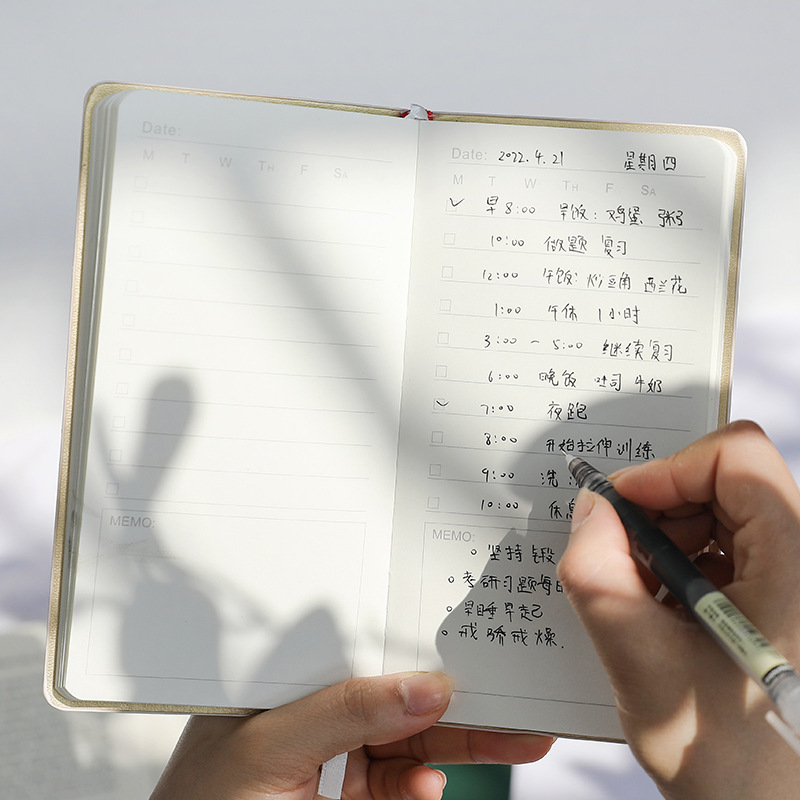 Date:
M T W TH F SA
MEMO:
Date: 2022.4.21 星期四
M T W TH F SA
早8:00 早饭:鸡蛋 粥
10:00 做题 复习
12:00 午饭:炒豆角 西兰花
1:00 午休 1小时
3:00 - 5:00 继续复习
6:00 晚饭 吐司 牛奶
7:00 夜跑
8:00 开始拉伸训练
9:00 洗
10:00 休
MEMO:
坚持锻
考研习题每日
早睡早起
戒骄戒燥.